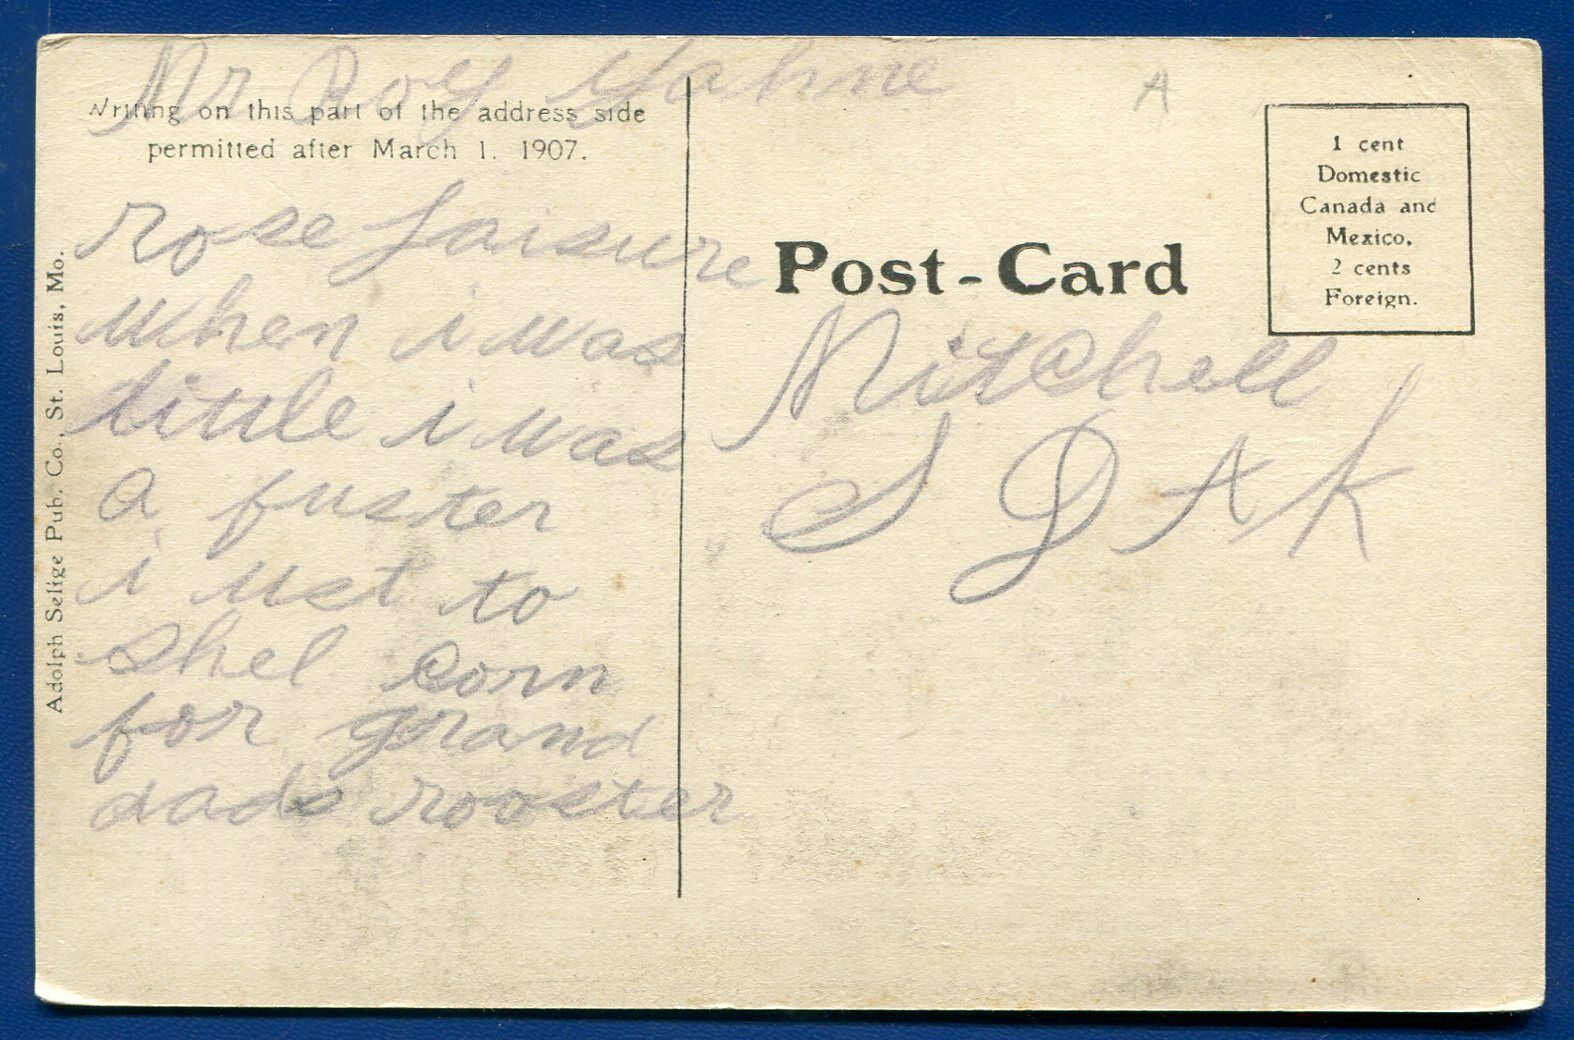 Mr Roy Yahne
Writing on this part of the address side
permitted after March 1. 1907.
rose Laisure
when i was
little i was
a fuster
i ust to
shel corn
for grand
dads rooster
Adolph Selige Pub. Co., St. Louis, Mo.
A
Post-Card
1 cent
Domestic
Canada and
Mexico,
2 cents
Foreign.
Mitchell
S DAK